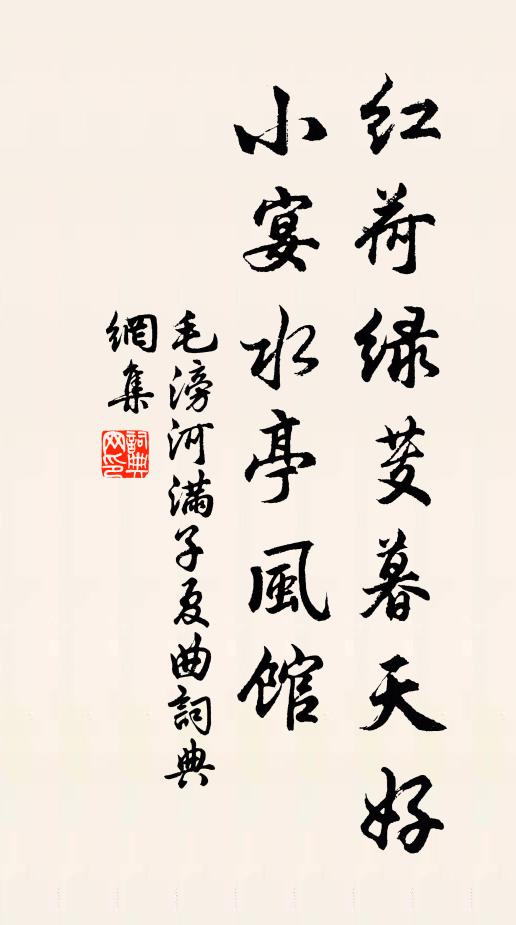 红荷绿芰暮天好
小宴水亭風馆
毛滂河满子夏曲詞典
網集
詞典網印